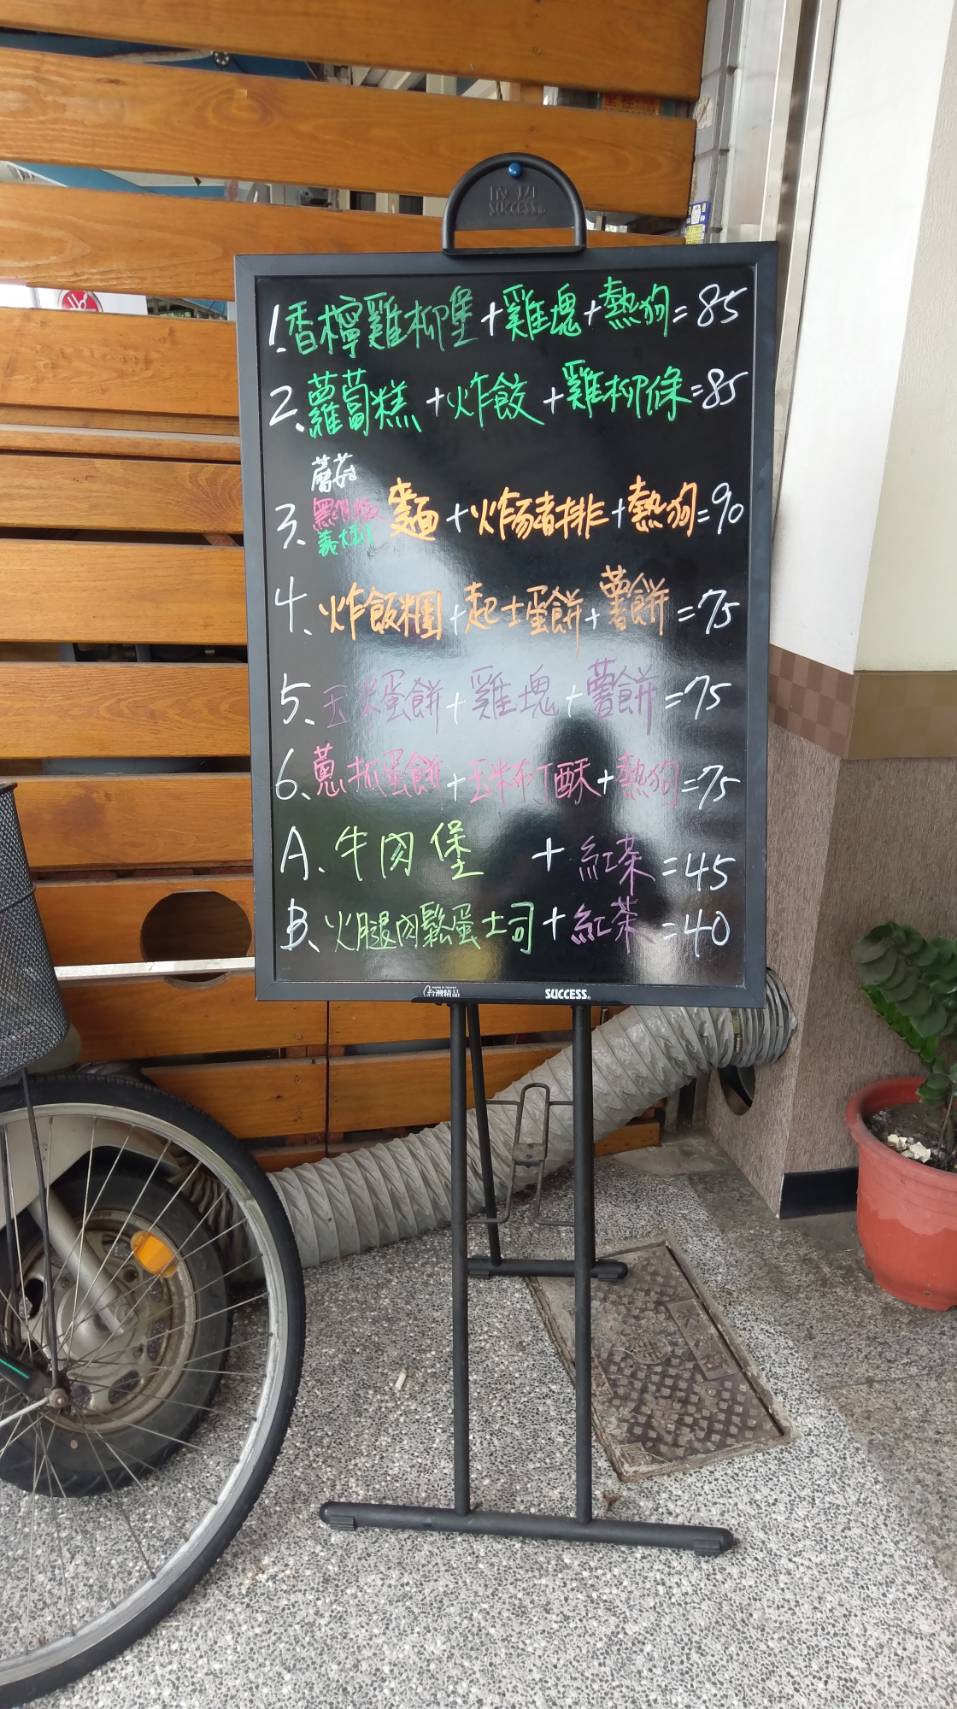 成功
SUCCESS
1.香檸雞柳堡+雞塊+熱狗=85
2、蘿蔔糕+炸餃+雞柳條=85
蘑菇
黑胡椒
義大利
3、麵+炸豬排+熱狗=90
4、炸飯糰+起士蛋餅+薯餅=75
5、玉米蛋餅+雞塊+薯餅=75
6、蔥抓蛋餅+玉米布丁酥+熱狗=75
A、牛肉堡+紅茶=45
B、火腿肉鬆蛋土司+紅茶=40
台灣精品
SUCCESS